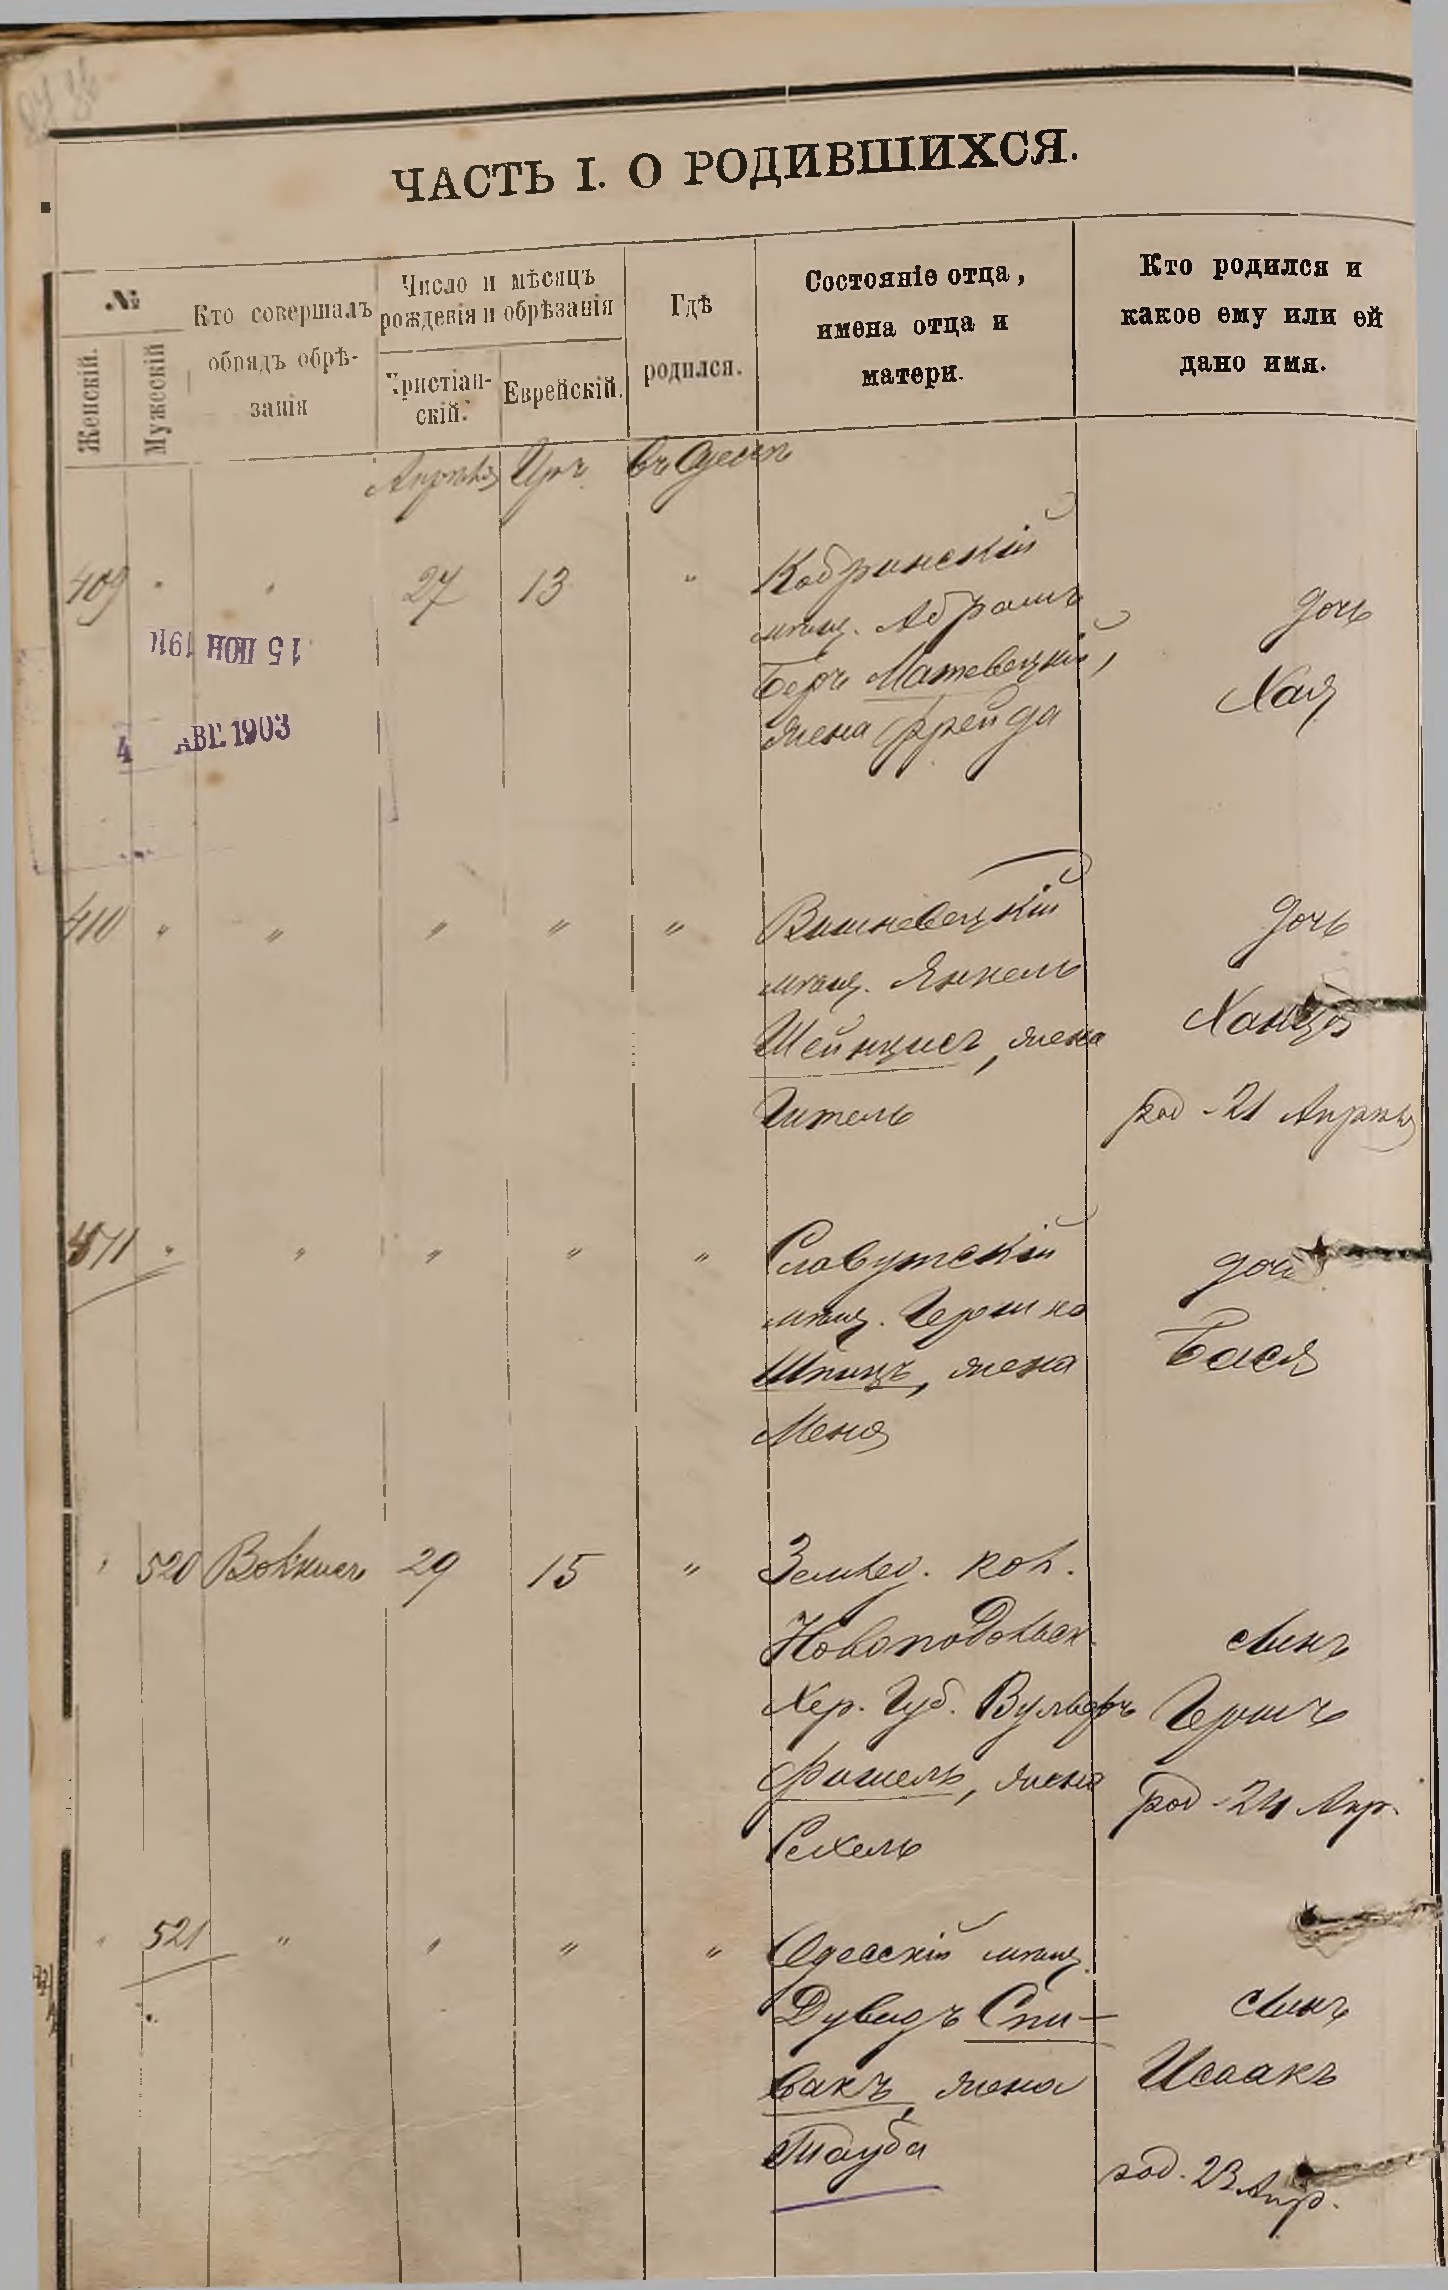 ЧАСТЬ I. О РОДИВШИХСЯ.
№
Женскій.
Мужескій
Кто совершалъ
обрядъ обрѣ-
занія
Число и мѣсяцъ
рожденія и обрѣзанія
Христіан-
скій.
Еврейскій.
Гдѣ
родился.
Состояніе отца,
имена отца и
матери.
Кто родился и
какое ему или ей
дано имя.
Апрѣля Іяръ въ Одессѣ
409 " " 27 13 "
Кобринскій
мѣщ. Абрамъ
Беръ Матевецкій,
жена Фрейда
дочь
Хая
15 ІЮН 191
4 АВГ. 1903
410 " " " " "
Вишневецкій
мѣщ. Янкель
Шейнцисъ, жена
Гитель
дочь
Ханця
род - 21 Апрѣля
411 " " " " "
Славутскій
мѣщ. Гершко
Шпицъ, жена
Меня
дочь
Бася
" 520 Волкисъ 29 15 "
Землед. кол.
Новоподольск.
Хер. Губ. Вульфъ
Фишель, жена
Сехель
сынъ
Гершъ
род - 24 Апр.
" 521 " " " "
Одесскій мѣщ.
Дувидъ Спи-
вакъ, жена
Тауба
сынъ
Исаакъ
род. 23 Апр.